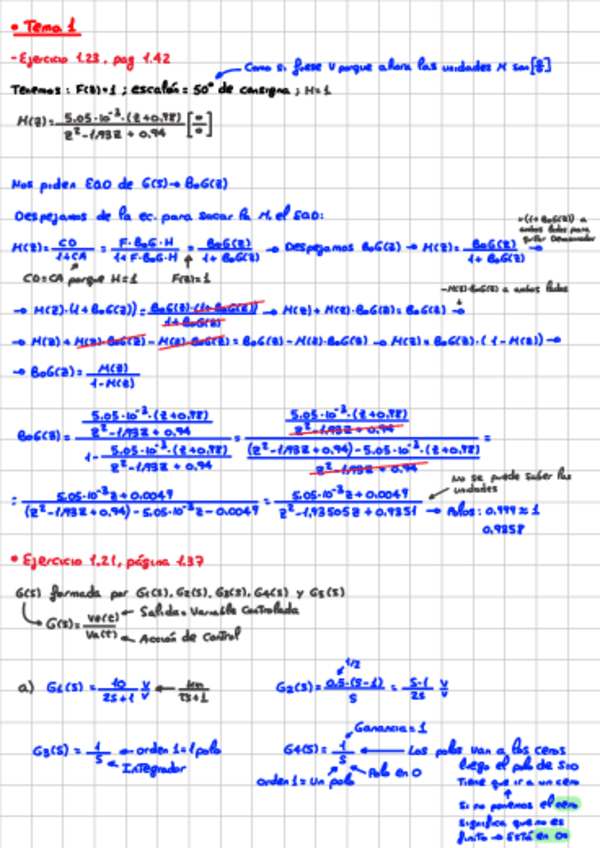 • Tema 1
- Ejercicio 1.23, pag 1.42
Como si fuese V porque ahora las unidades M son [º/º]
Tenemos: F(z)=1 ; escalón = 50° de consigna ; H=1
M(z) = 5.05·10^-3·(z+0.98) / z²-1.93z+0.94 [º/º]
Nos piden EQD de G(s) → BoG(z)
Despejamos de la ec. para sacar la M, el EQD:
M(z) = CD/1+CA = F·BoG·H/1+F·BoG·H = BoG(z)/1+BoG(z) → Despejamos BoG(z) → M(z) = BoG(z)/1+BoG(z) →
×(1+BoG(z)) a ambos lados para quitar Denominador
CD=CA porque H=1 F(z)=1
-M(z)·BoG(z) a ambos lados
→ M(z)·(1+BoG(z)) = BoG(z)·(1+BoG(z))/1+BoG(z) → M(z)+M(z)·BoG(z) = BoG(z) →
→ M(z)+M(z)·BoG(z)-M(z)·BoG(z) = BoG(z)-M(z)·BoG(z) → M(z) = BoG(z)·(1-M(z)) →
→ BoG(z) = M(z)/1-M(z)
BoG(z) = 5.05·10^-3·(z+0.98) / z²-1.93z+0.94 / 1- 5.05·10^-3·(z+0.98) / z²-1.93z+0.94 = 5.05·10^-3·(z+0.98) / z²-1.93z+0.94 / (z²-1.93z+0.94)-5.05·10^-3·(z+0.98) / z²-1.93z+0.94 =
No se puede saber las unidades
= 5.05·10^-3z+0.0049 / (z²-1.93z+0.94)-5.05·10^-3z-0.0049 = 5.05·10^-3z+0.0049 / z²-1.93505z+0.9351 → Polos: 0.999≈1
0.9358
• Ejercicio 1.21, página 1.37
G(s) formada por G1(s), G2(s), G3(s), G4(s) y G5(s)
G(s) = Ve(t)/Va(t) ← Salida = Variable Controlada
← Acción de Control
1/2
a) G1(s) = 10/2s+1 V/V ← Km/Ts+1 G2(s) = 0.5·(s-1)/s = s-1/2s V/V
Ganancia = 1
G3(s) = 1/s ← orden 1 = 1 polo G4(s) = 1/s ← Los polos van a los ceros
Integrador
luego el polo de s=0
Orden 1 = Un polo Polo en 0
Tiene que ir a un cero
Si no ponemos el cero
significa que no es
finito → Está en ∞